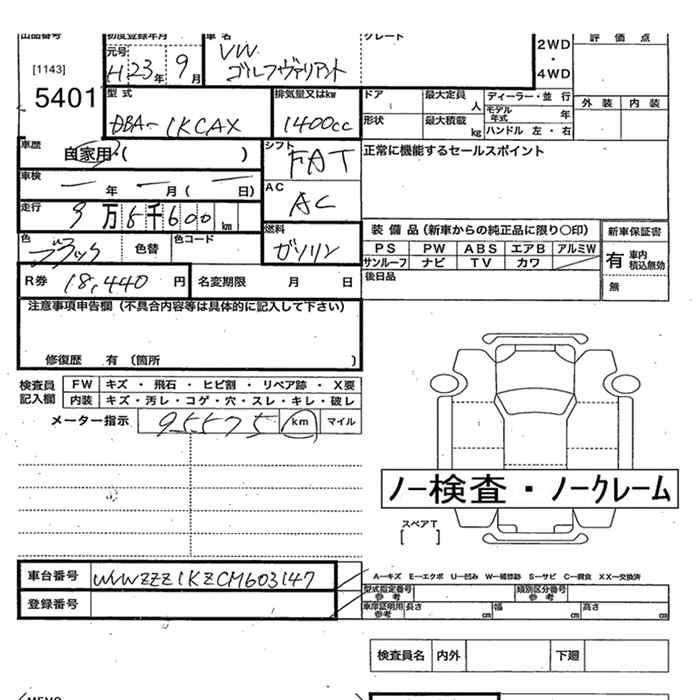 出品番号 初度登録年月 車名 グレード
[1143]
5401
元号
H23年 9月
VW
ゴルフヴァリアント
2WD
・
4WD
評価点
外装 内装
型式
DBA-1KCAX
排気量又はkw
1400cc
ドア 最大定員 人
形状 最大積載 kg
ディーラー・並行
モデル年式 年
ハンドル 左・右
車歴
自家用・( )
シフト
FAT
正常に機能するセールスポイント
車検
年 月( 日)
AC
AC
走行
9万 千600km
色
ブラック
色替
色コード
燃料
ガソリン
装備品(新車からの純正品に限り○印)
PS PW ABS エアB アルミW
サンルーフ ナビ TV カワ
後日品
新車保証書
有 車内積込無効
無
R券 18,440円
名変期限 月 日
注意事項申告欄(不具合内容等は具体的に記入して下さい)
修復歴 有 (箇所 )
検査員記入欄
FW キズ・飛石・ヒビ割・リペア跡・X要
内装 キズ・汚レ・コゲ・穴・スレ・キレ・破レ
メーター指示 95575 km マイル
ノー検査・ノークレーム
スペアT
[ ]
車台番号 WVWZZZ1KZCM603147
登録番号
A―キズ E―エクボ U―凹み W―補修跡 S―サビ C―腐食 XX―交換済
型式指定番号 参考
類別区分番号 参考
車庫証明用 参考 長さ cm 幅 cm 高さ cm
検査員名 内外 下廻
MEMO